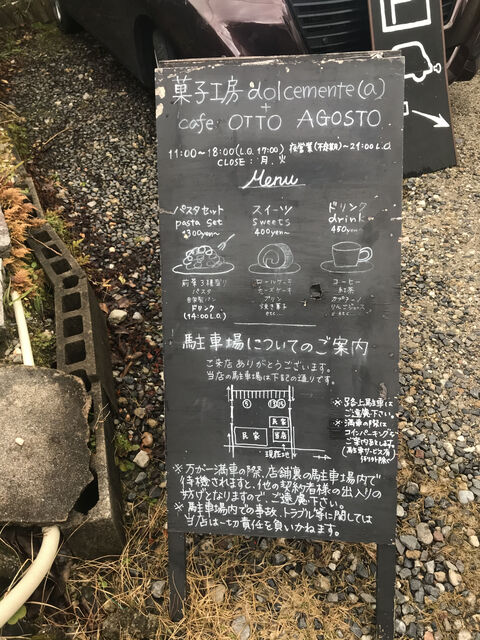 菓子工房 dolcemente(a)
+
cafe OTTO AGOSTO
11:00〜18:00(L.O. 17:00) 夜営業(不定期)〜21:00 L.O.
CLOSE : 月. 火
Menu
パスタセット
pasta set
1300yen〜
前菜3種盛り
パスタ
自家製パン
ドリンク
(14:00 L.O.)
スイーツ
sweets
400yen〜
ロールケーキ
チーズケーキ
プリン
焼き菓子
etc...
ドリンク
drink
450yen〜
コーヒー
紅茶
カプチーノ
りんごジュース
etc...
駐車場についてのご案内
ご来店ありがとうございます。
当店の駐車場は下記の通りです。
民家
民家
当店
現在地
※路上駐車は
ご遠慮下さい。
※満車の際は
コインパーキングを
ご案内します
(駐車サービス有)
※万が一満車の際、店舗裏の駐車場内で
待機されますと、他の契約者様の出入りの
妨げとなりますので、ご遠慮下さい。
※駐車場内での事故、トラブル等に関しては
当店は一切責任を負いかねます。